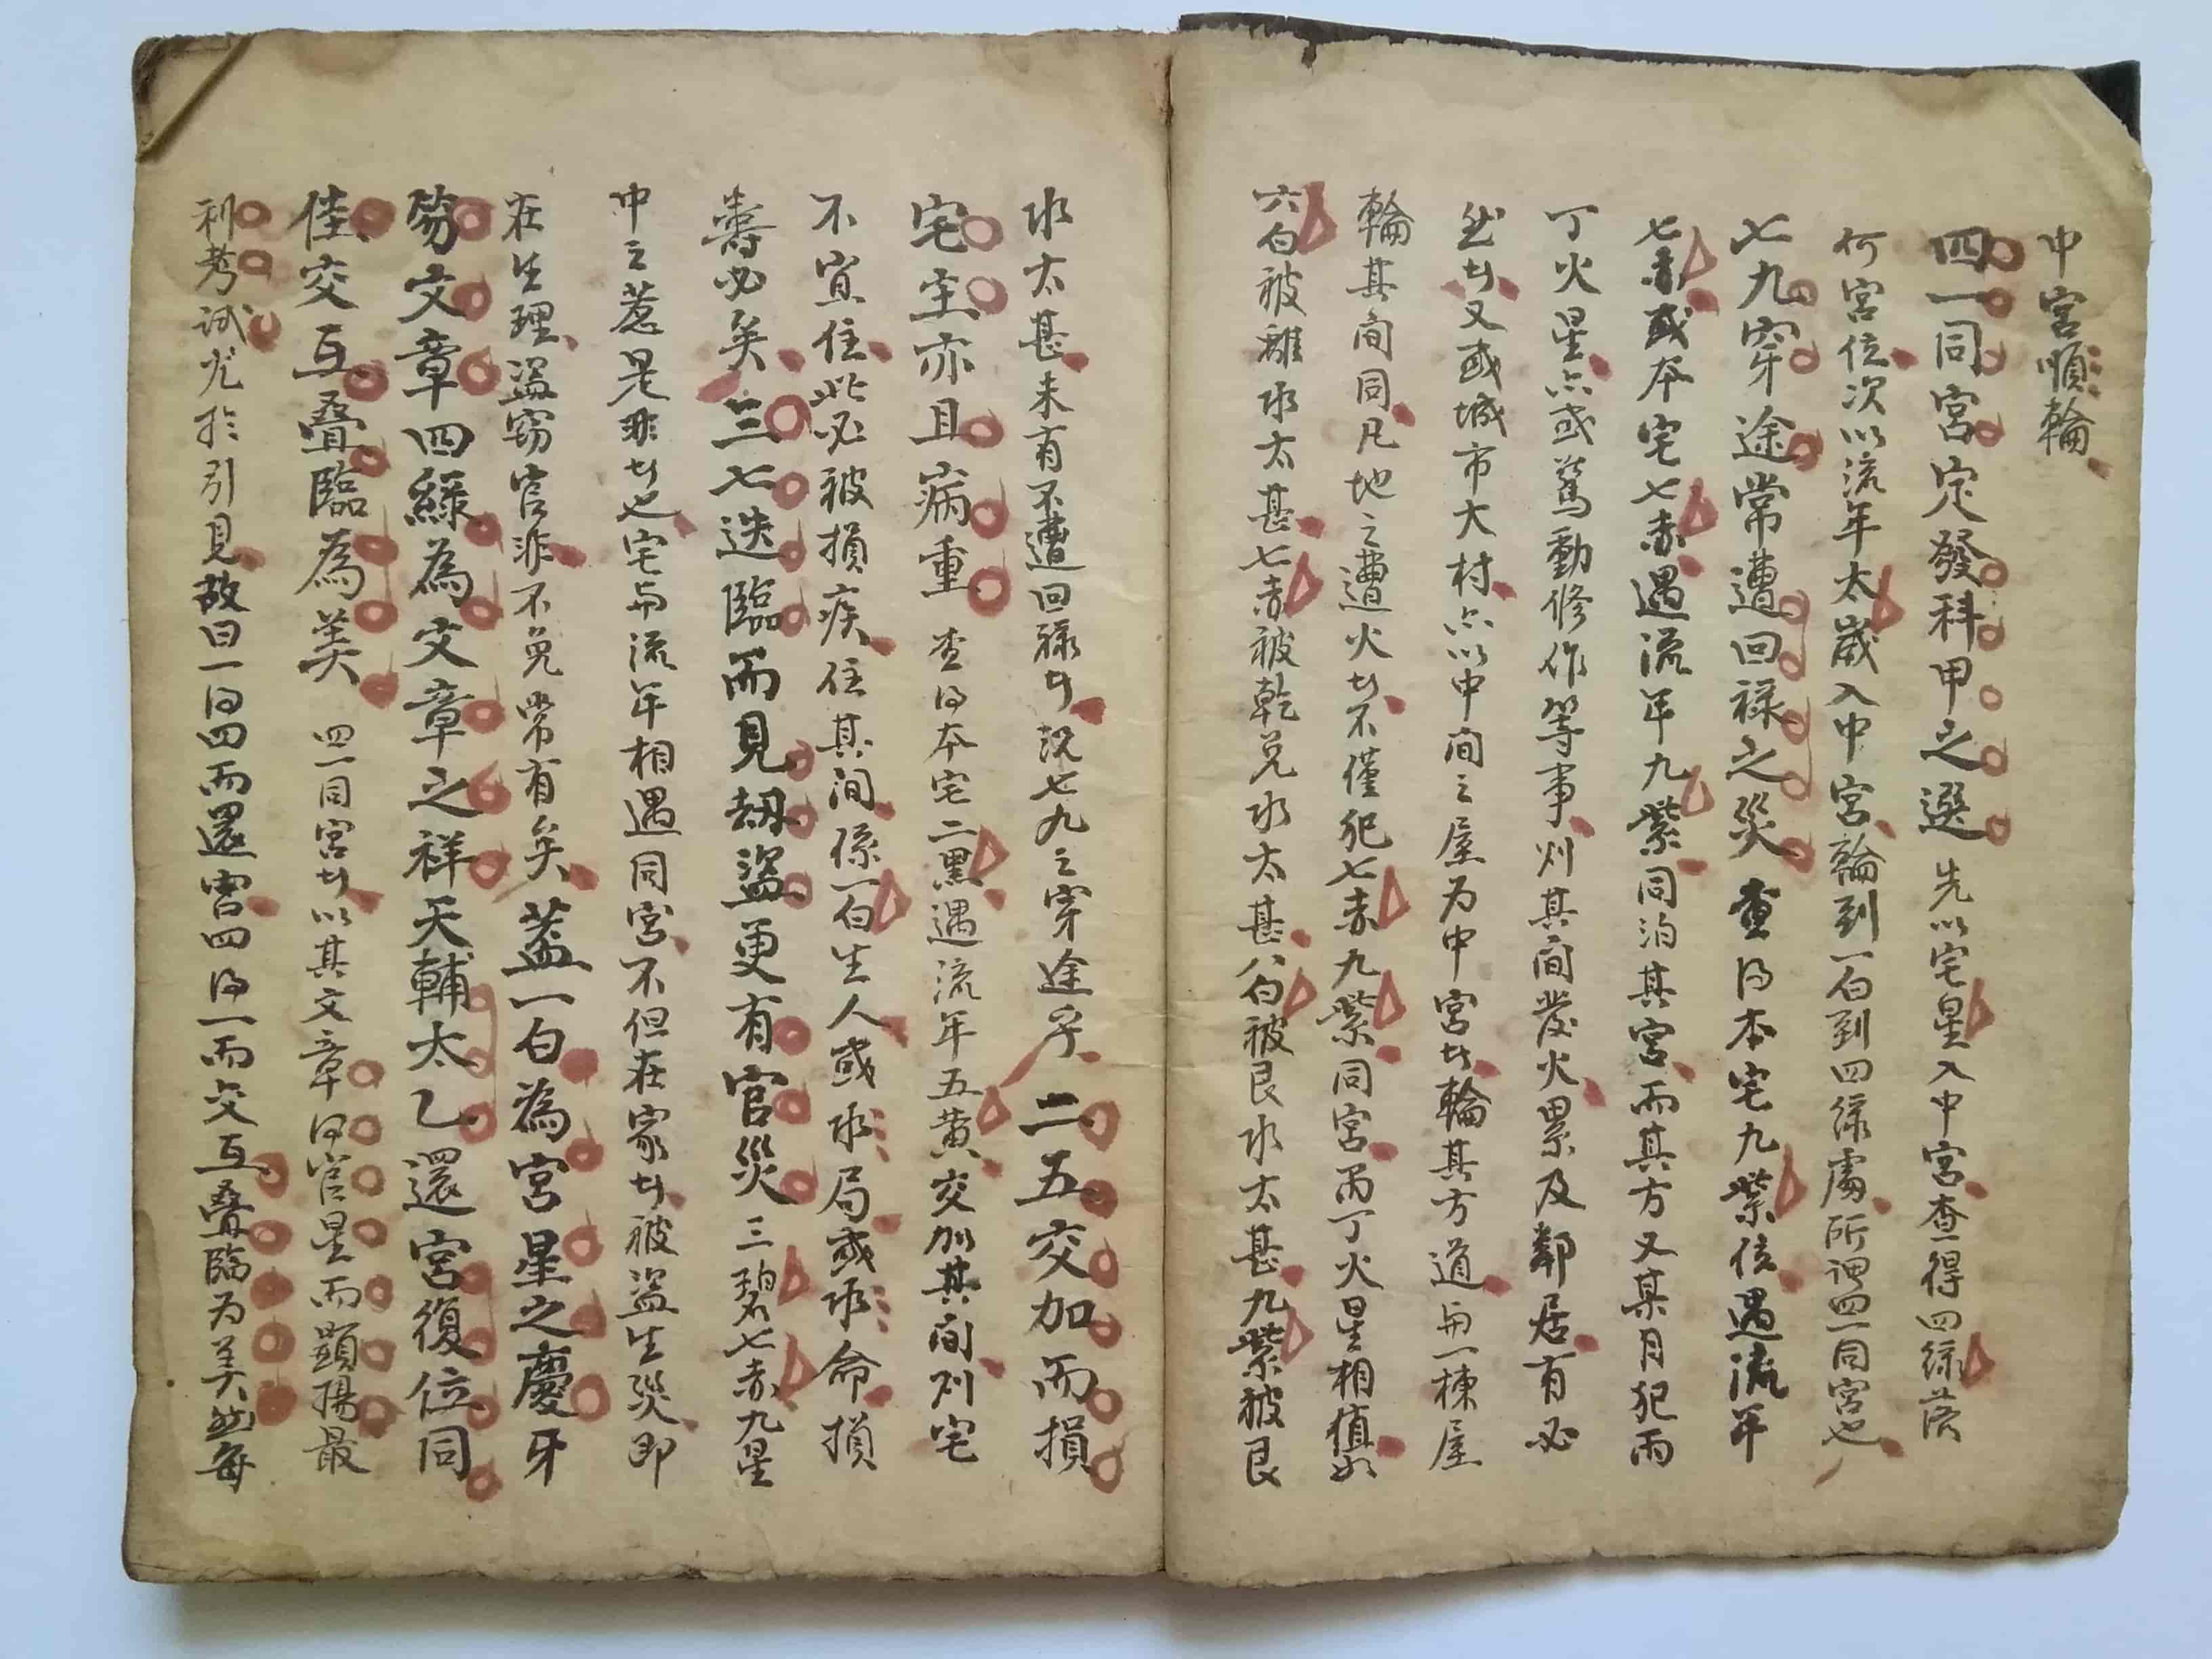 中宮順輪
四一同宮定發科甲之選先以宅星入中宮查得四綠落
何宮位次以流年太歲入中宮輪到一白到四綠處所謂四一同宮也
七九穿途常遭回祿之災查得本宅九紫位遇流年
七赤或本宅七赤遇流年九紫同泊其宮而其方又某月犯丙
丁火星亦或篤動修作等事刈其间發火累及鄰居有必
然者又或城市大村亦以中间之屋为中宮者輪其方道與一棟屋
輪其间同凡地之遭火者不僅犯七赤九紫同宮丙丁火星相值如
六白被離水太甚七赤被乾兌水太甚八白被艮水太甚九紫被艮
水太甚未有不遭回祿者況七九之穿途乎二五交加而損
宅主亦且病重查得本宅二黑遇流年五黃交加其间刈宅
不宜住此必被損疾住其间係一白生人或水局或水命損
壽必矣三七迭臨而見刼盜更有官災三碧七赤九星
中之惹是非者也宅與流年相遇同宮不但在家者被盜生災即
在生理盜窃官非不免常有矣蓋一白為宮星之慶牙
笏文章四綠為文章之祥天輔太乙還宮復位同
佳交互叠臨為美四一同宮者以其文章得官星而顯揚最
利考試尤於引見故曰一得四而還宮四得一而交互叠臨为美然每